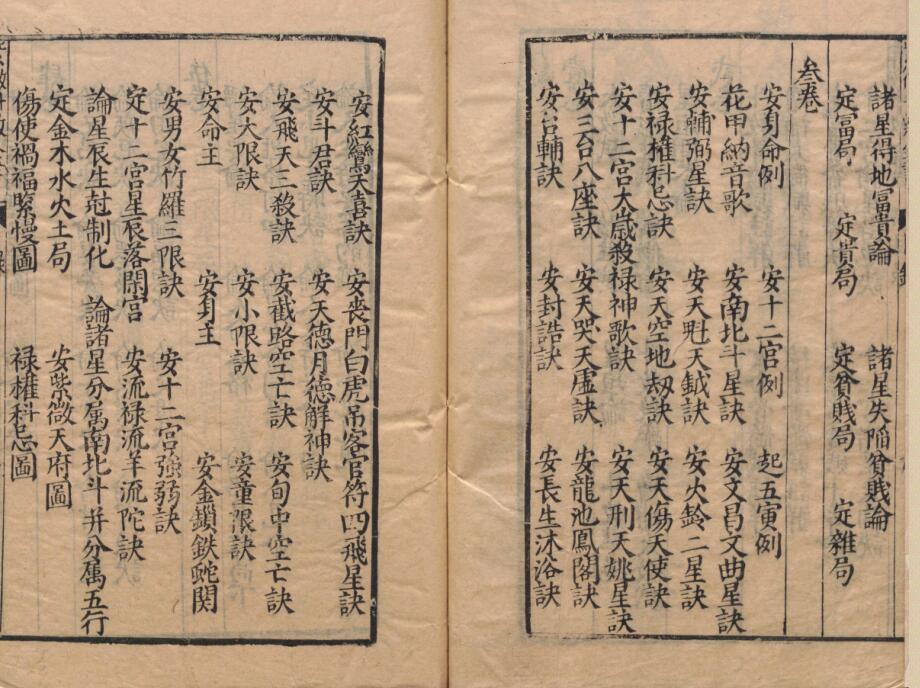 諸星得地富貴論 諸星失陷貧賤論
定富局 定貴局 定貧賤局 定雜局
叄卷
安身命例 安十二宮例 起五寅例
花甲納音歌 安南北斗星訣 安文昌文曲星訣
安輔弼星訣 安天魁天鉞訣 安火鈴二星訣
安禄權科忌訣 安天空地刼訣 安天傷天使訣
安十二宮太歲殺禄神歌訣 安天刑天姚星訣
安三台八座訣 安天哭天虛訣 安龍池鳳閣訣
安台輔訣 安封誥訣 安長生沐浴訣
安紅鸞天喜訣 安喪門白虎吊客官符四飛星訣
安斗君訣 安天德月德解神訣
安飛天三殺訣 安截路空亡訣 安旬中空亡訣
安大限訣 安小限訣 安童限訣
安命主 安身主 安金鎖鉄蛇関
安男女竹羅三限訣 安十二宮強弱訣
定十二宮星辰落閑宮 安流禄流羊流陀訣
論星辰生尅制化 論諸星分属南北斗并分属五行
定金木水火土局 安紫微天府圖
傷使禍福緊慢圖 禄權科忌圖